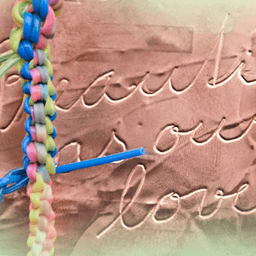 eauti
as our
love